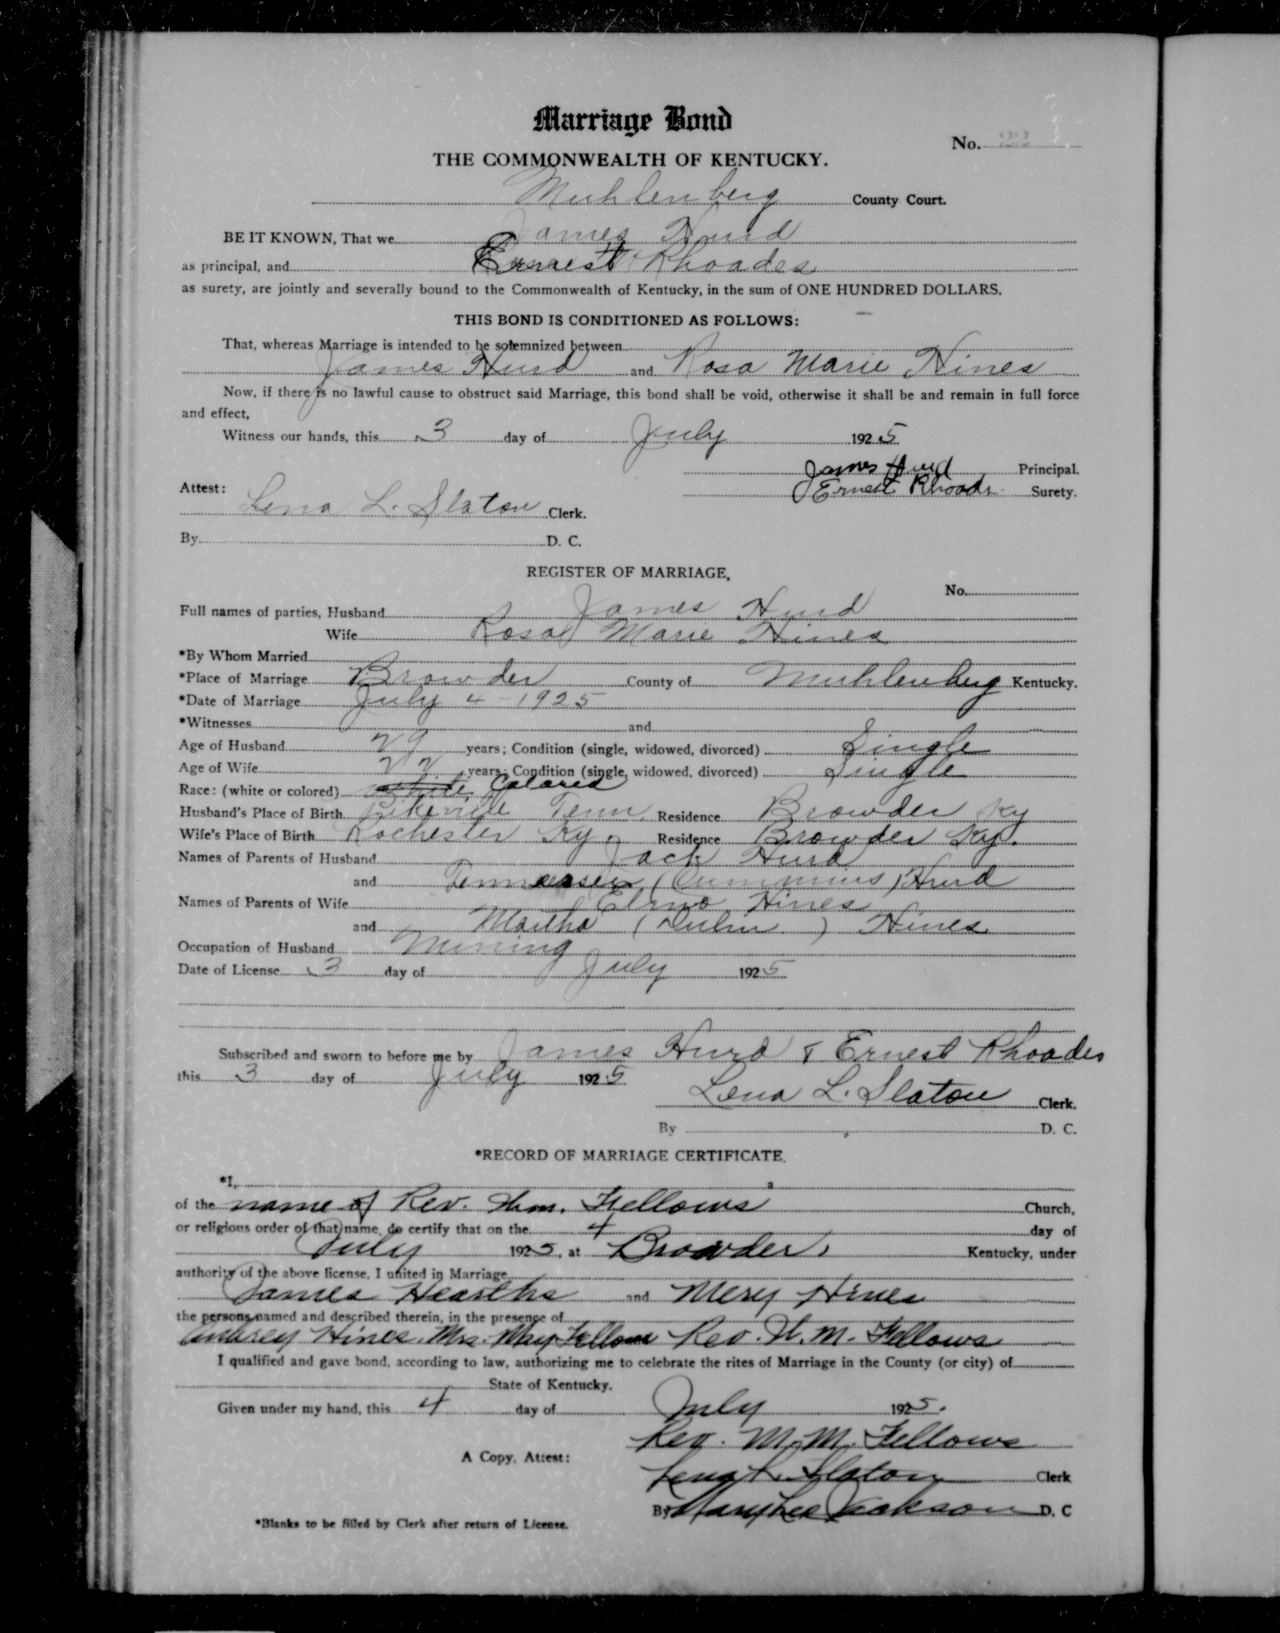 Marriage Bond
No.
THE COMMONWEALTH OF KENTUCKY.
Muhlenberg County Court.
BE IT KNOWN, That we James Hurd
as principal, and Ernest Rhoades
as surety, are jointly and severally bound to the Commonwealth of Kentucky, in the sum of ONE HUNDRED DOLLARS.
THIS BOND IS CONDITIONED AS FOLLOWS:
That, whereas Marriage is intended to be solemnized between
James Hurd and Rosa Marie Hines
Now, if there is no lawful cause to obstruct said Marriage, this bond shall be void, otherwise it shall be and remain in full force
and effect,
Witness our hands, this 3 day of July 1925
James Hurd Principal.
Ernest Rhoads Surety.
Attest:
Lena L. Slaton Clerk.
By D. C.
REGISTER OF MARRIAGE,
No.
Full names of parties, Husband James Hurd
Wife Rosa Marie Hines
*By Whom Married
*Place of Marriage Browder County of Muhlenberg Kentucky.
*Date of Marriage July 4 - 1925
*Witnesses and
Age of Husband 29 years; Condition (single, widowed, divorced) Single
Age of Wife 22 years; Condition (single, widowed, divorced) Single
Race: (white or colored) white Colored
Husband's Place of Birth Pikeville Tenn Residence Browder Ky
Wife's Place of Birth Rochester Ky. Residence Browder Ky.
Names of Parents of Husband Jack Hurd
and (Cummins) Hurd
Names of Parents of Wife Elmo Hines
and Martha (Dulin) Hines
Occupation of Husband Mining
Date of License 3 day of July 1925
Subscribed and sworn to before me by James Hurd & Ernest Rhoades
this 3 day of July 1925
Lena L. Slaton Clerk.
By D. C.
*RECORD OF MARRIAGE CERTIFICATE.
*I,
of the name of Rev. Wm. Fellows Church,
or religious order of that name, do certify that on the 4 day of
July 1925, at Browder, Kentucky, under
authority of the above license, I united in Marriage
James Hearths and Mery Hines
the persons named and described therein, in the presence of
Audrey Hines. Mrs. May Fellows Rev. W. M. Fellows
I qualified and gave bond, according to law, authorizing me to celebrate the rites of Marriage in the County (or city) of
State of Kentucky.
Given under my hand, this 4 day of July 1925.
Rev. M. M. Fellows
A Copy. Attest:
Lena L. Slaton Clerk
By Mary Lee Jackson D. C
*Blanks to be filled by Clerk after return of License.